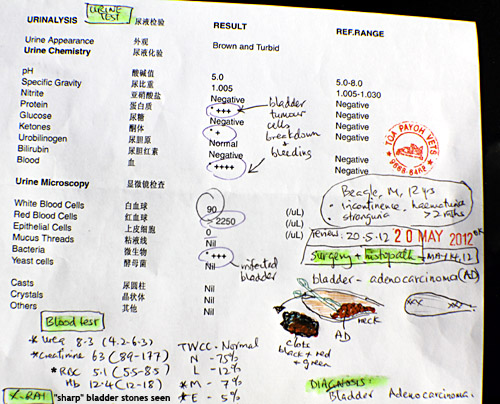 URINE TEST
URINALYSIS 尿液检验 RESULT REF.RANGE
Urine Appearance 外观 Brown and Turbid
Urine Chemistry 尿液化验
pH 酸碱值 5.0 5.0-8.0
Specific Gravity 尿比重 1.005 1.005-1.030
Nitrite 亚硝酸盐 Negative Negative
Protein 蛋白质 * +++ Negative
Glucose 尿糖 Negative Negative
Ketones 酮体 * + Negative
Urobilinogen 尿胆原 Normal
Bilirubin 尿胆红素 Negative Negative
Blood 血 * ++++ Negative
bladder
tumour
cells
breakdown +
bleeding
TOA PAYOH VETS
Beagle, M, 12 yrs
• incontinence, haematuria
• stranguria > 2 mths
Urine Microscopy 显微镜检查
White Blood Cells 白血球 90 (/uL)
Red Blood Cells 红血球 > 2250 (/uL)
Epithelial Cells 上皮细胞 0 (/uL)
Mucus Threads 粘液线 Nil
Bacteria 微生物 * +++
Yeast cells 酵母菌 Nil
Casts 尿圆柱 Nil
Crystals 晶状体 Nil
Others 其他 Nil
infected
bladder
review: 20.5.12 20 MAY 2012
surgery + histopath
bladder - adenocarcinoma (AD)
neck
AD
clots
black + red
+ green
xx xx
Blood test
* Urea 8.3 (4.2-6.3)
* Creatinine 63 (89-177)
* RBC 5.1 (5.5-8.5)
Hb 12.4 (12-18)
TWCC - Normal
N - 75%
L - 12%
* M - 7%
* E - 5%
X-RAY "sharp" bladder stones seen
DIAGNOSIS:
Bladder Adenocarcinoma.